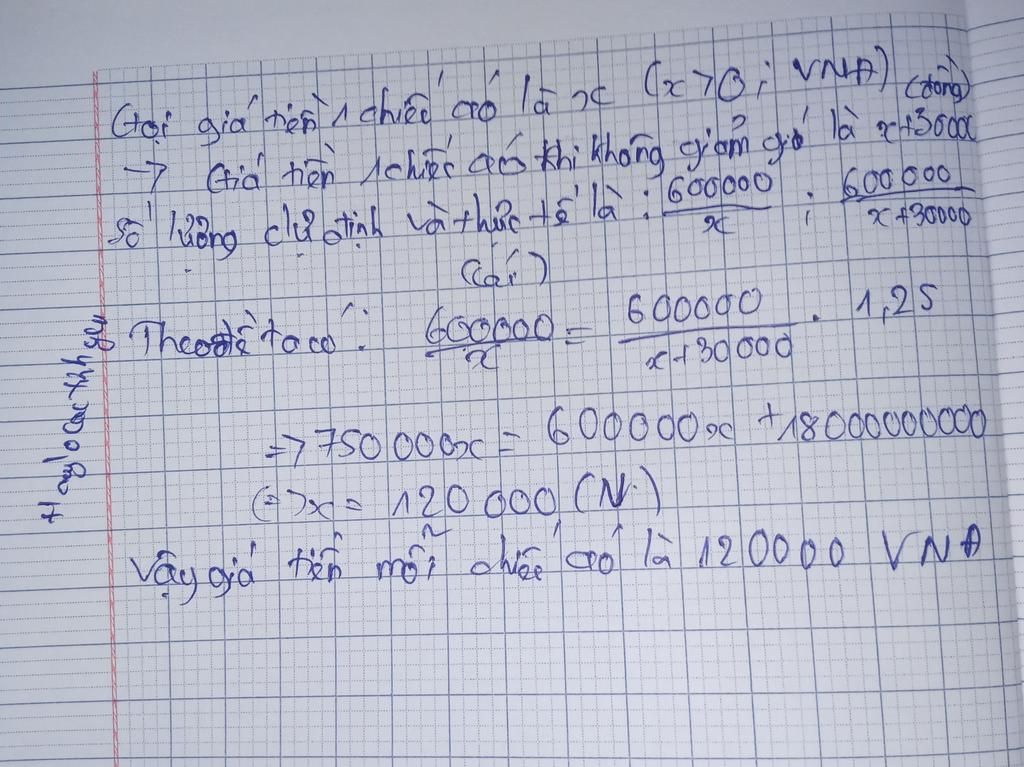 Gọi giá tiền 1 chiếc áo là x (x>0; VNĐ)
→ Giá tiền 1 chiếc áo khi không giảm giá là x+30000 (đồng)
Số lượng dự định và thực tế là: 600000/x ; 600000/x+30000
(cái)
Theo đề ta có: 600000/x = 600000/x+30000 . 1,25
=> 750000x = 600000x + 18000000000
(=)x = 120000 (N)
Vậy giá tiền mỗi chiếc áo là 120000 VNĐ